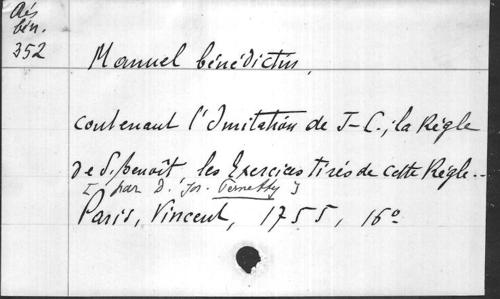 Rés
bén.
352
Manuel bénédictin,
contenant l'Imitation de J-C.; la Règle
de S. Benoît, les Exercices tirés de cette Règle..
[par D. Jos. Pernetty]
Paris, Vincent, 1755, 16°